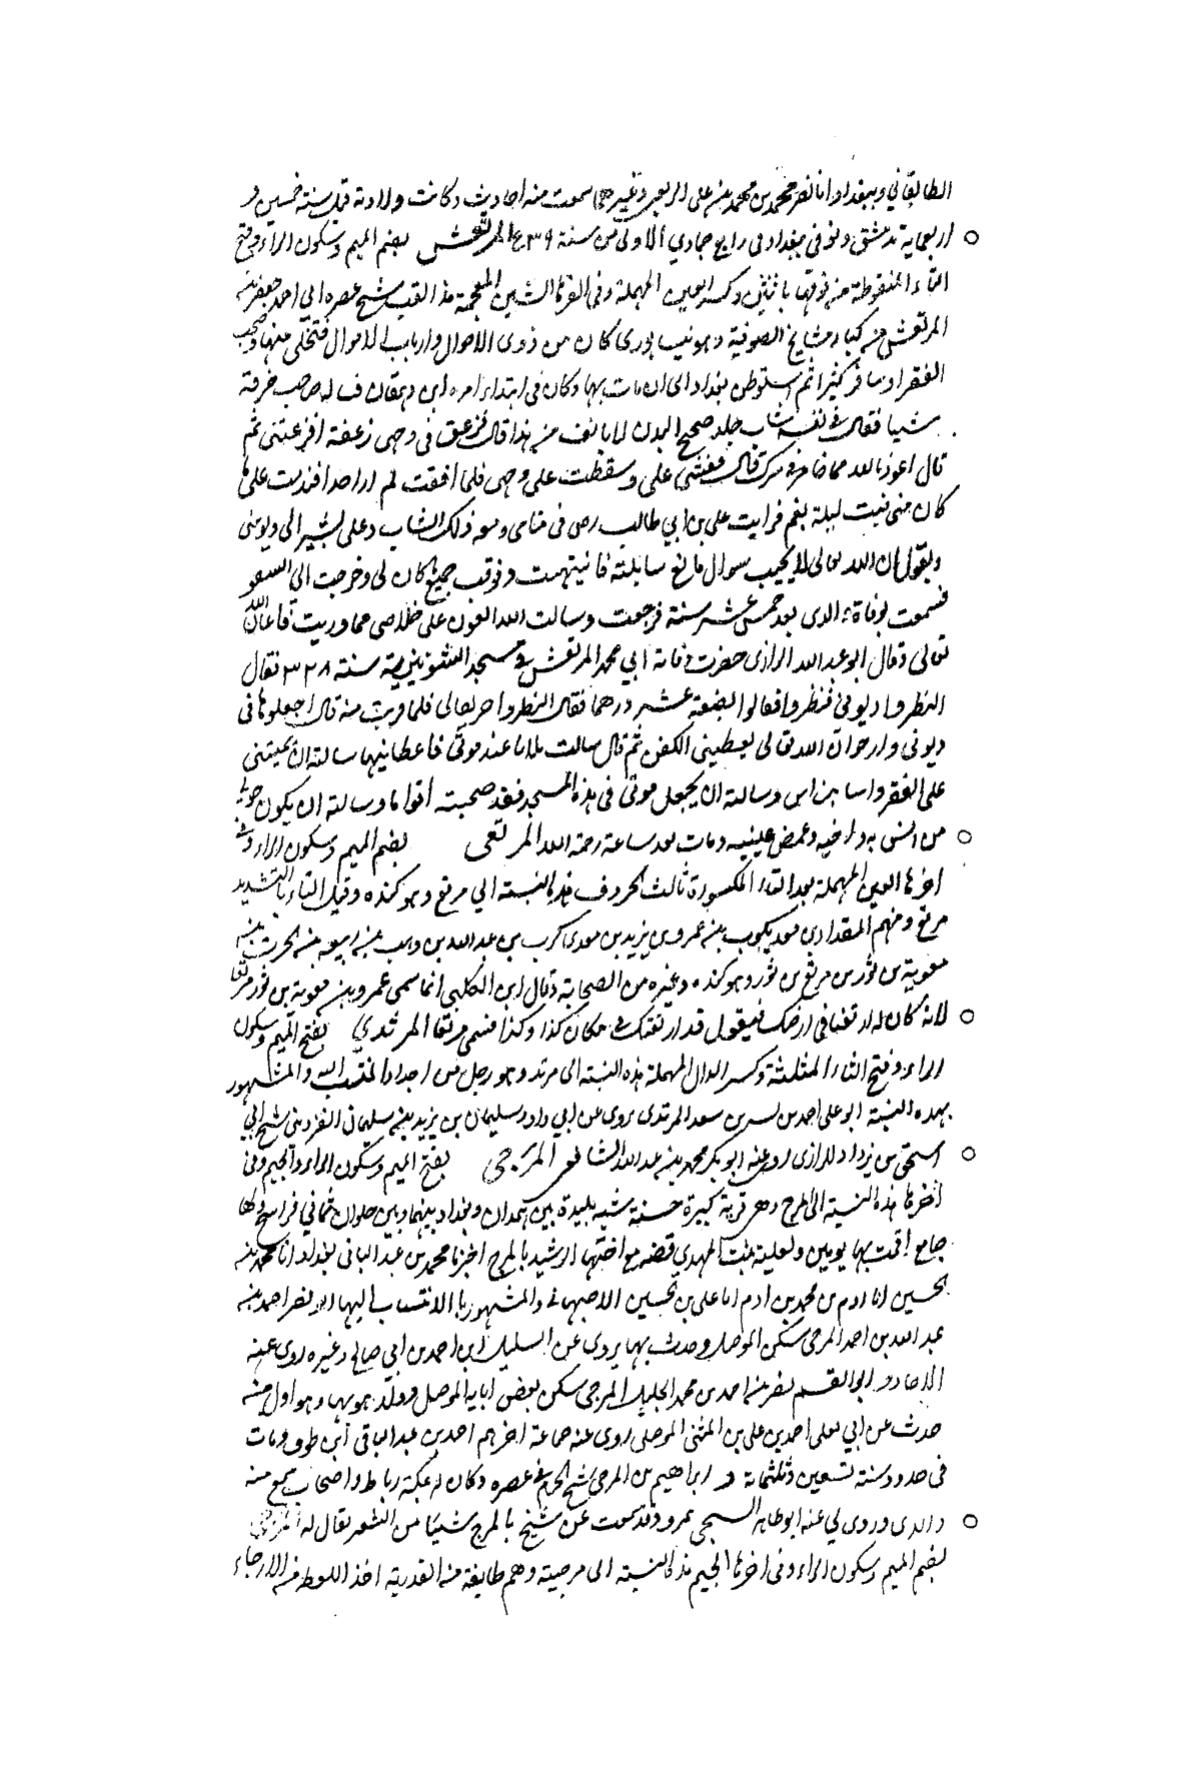 الطالقاني وببغداد ابا نصر محمد بن محمد بن على الزينبي وغيرهما سمعت منه احاديث وكانت ولادته قبل سنة خمسين و
اربعماية بدمشق وتوفى ببغداد فى رابع جمادي الاولى من سنة ٥٣٩ المرتعش بضم الميم وسكون الراء وفتح
التاء المنقوطة من فوقها باثنتين وكسر العين المهملة وفى اخرها الشين المعجمة هذا لقب شيخ عصره ابي احمد جعفر
المرتعش من كبار مشايخ الصوفية وهو نيسابورى كان من ذوى الاحوال وارباب الاموال فتخلى منها وصحب
الفقراء وسافر كثيرا ثم استوطن بغداد الى ان مات بها وكان فى ابتداء امره ابن دهقان فساله صاحب خرقة
شيا فقال فى نفسه شاب جلد صحيح البدن لا يانف من هذا قال فزعق فى وجهى زعقة افزعتنى ثم
قال اعوذ بالله مما خامر فى سرك قال فغشى على وسقطت على وجهى فلما افقت لم ار احدا فندمت على ما
كان منى فبت ليلة بغم فرايت على بن ابي طالب رضى فى منامى ومعه ذلك الشاب وعلى يشير الى ويوبخنى
ويقول ان الله تعالى لا يجيب سوال مانع سايلته فانتبهت وفرقت جميع ما كان لى وخرجت الى السفر
فسمعت بوفاة والدى بعد خمس عشر سنة فرجعت وسالت الله العون على خلاصى مما ورثت فاعان الله
تعالى وقال ابو عبد الله الرازى حضرت وفاة ابي محمد المرتعش فى مسجد الشونيزية سنة ٣٢٨ فقال
انظروا ديونى فنظروا فقالوا بضعة عشر درهما فقال انظروا خريقاتى فلما قربت منه قال اجعلوها فى
ديونى وارجو ان الله تعالى يعطينى الكفن ثم قال سالت ثلاثا عند موتى فاعطانيها سالته ان يميتنى
على الفقر راسا براس وسالته ان يجعل موتى فى هذه المسجد فقد صحبت اقواما وسالته ان يكون حولى
من انس به واحبه وغمض عينيه ومات بعد ساعة رحمة الله المرتعى بضم الميم وسكون الراء وفى
اخرها العين المهملة بعد التاء المكسورة ثالث الحروف هذه النسبة الي مرتع وهو كنده وقيل التاء بالتشديد
مرتع ومنهم المقدام بن معديكرب بن عمرو بن يزيد بن معدى كرب بن عبد الله بن وهب بن ربيعه بن الحرث بن
معوية بن ثور بن مرتع بن ثور وهو كنده وغيره من الصحابة وقال ابن الكلبى انما سمى عمرو بن معوية بن ثور مرتعا
لانه كان له ارتعنا فى ارضك فيقول قد ارتعتك فى مكان كذا وكذا فسمى مرتعا المرثدي بفتح الميم وسكون
الراء وفتح الثاء المثلثة وكسر الدال المهملة هذه النسبة الى مرثد وهو رجل من اجداد المنتسب اليه والمشهور
بهذه النسبة ابو على احمد بن بشر بن سعد المرثدى يروى عن ابي داود سليمان بن يزيد بن سليمان القزوينى شيخ ابي
اسحق بن يزداد الرازى روى عنه ابو بكر محمد بن عبد الله الشافعى المرجى بفتح الميم وسكون الراء والجيم وفى
اخرها هذه النسبة الى المرج وهى قرية كبيرة حسنة شبه بليدة بين همدان وبغداد بينها وبين حلوان ثمانى فراسخ ولها
جامع اقمت بها يومين ولعلية بنت المهدي قصة مع اختها الرشيد بالمرج اخبرنا محمد بن عبد الباقى ببغداد انا محمد بن
الحسين انا ادم بن محمد بن ادم انا على بن الحسين الاصبهانى والمشهور بالانتساب اليها ابو نصر احمد بن
عبد الله بن احمد المرجى سكن الموصل وحدث بها يروى عن السليل بن احمد بن ابي صالح وغيره روى عنه
ابو القسم نصر بن احمد بن محمد الخليل المرجى سكن بعض ابايه الموصل وولد هو بها وهو اول من
حدث عن ابي يعلى احمد بن على بن المثنى الموصلى روى عنه جماعة اخرهم احمد بن عبد الباقى ابن طوق ومات
فى حدود سنة تسعين وثلثماية و ابراهيم بن المرجى شيخ الحرم فى عصره وكان له بمكة رباط واصحاب سمع منه
والدى وروى لي عنه ابو طاهر السنجى بمرو وقد سمعت عن شيخ بالمرج شيئا من الشعر يقال له المرجى
بضم الميم وسكون الراء وفى اخرها الجيم هذه النسبة الى مرجية وهم طايفة من القدرية اخذ اللفظ من الارجاء